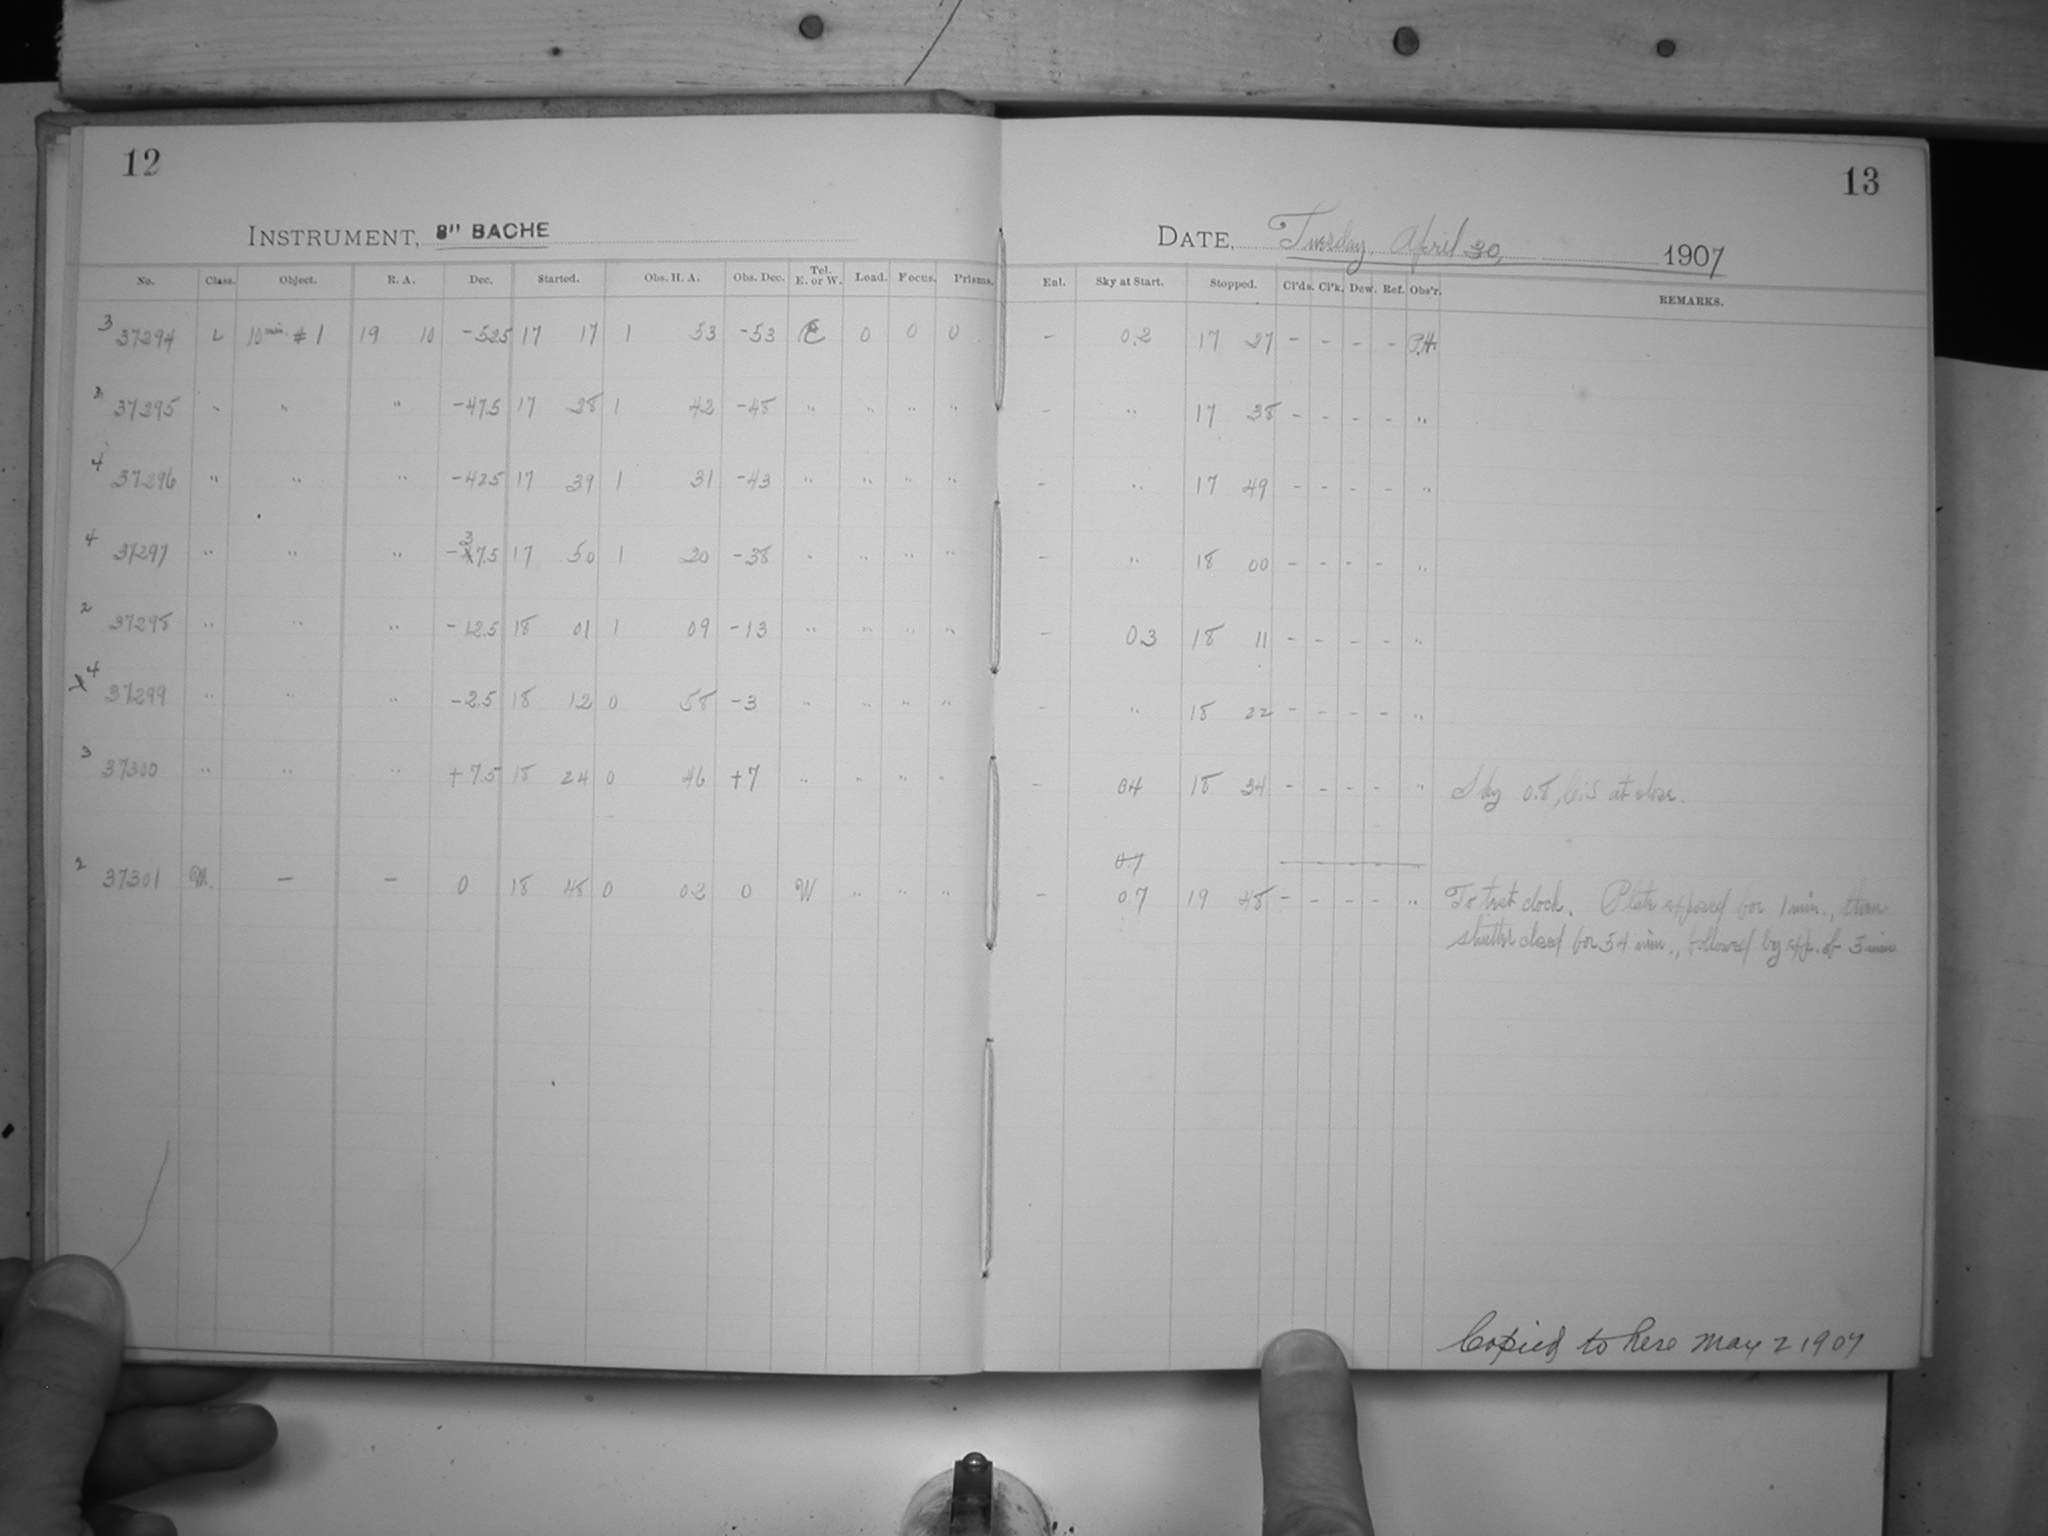 12
INSTRUMENT, 8" BACHE
No. Class. Object. R. A. Dec. Started. Obs. H. A. Obs. Dec. Tel. E. or W. Load. Focus. Prisms.
3 37294 L 10 min. # 1 19 10 -52.5 17 17 1 53 -53 E 0 0 0
3 37295 " " " -47.5 17 28 1 42 -48 " " " "
4 37296 " " " -42.5 17 39 1 31 -43 " " " "
4 37297 " " " -37.5 17 50 1 20 -38 " " " "
2 37298 " " " -12.5 18 01 1 09 -13 " " " "
4 37299 " " " -2.5 18 12 0 58 -3 " " " "
3 37300 " " " +7.5 18 24 0 46 +7 " " " "
2 37301 M. - - 0 18 48 0 02 0 W " " "
13
DATE, Tuesday, April 30, 1907
Enl. Sky at Start. Stopped. Cl'ds. Cl'k. Dew. Ref. Obs'r. REMARKS.
- 0.2 17 27 - - - - P.H.
- " 17 38 - - - - "
- " 17 49 - - - - "
- " 18 00 - - - - "
- 0.3 18 11 - - - - "
- " 18 22 - - - - "
- 0.4 18 34 - - - - " Sky 0.8, at close.
0.7
- 0.7 19 48 - - - - " To test clock. Plate exposed for 1 min., then
shutter closed for 54 min., followed by exp. of 5 min
Copied to here May 2 1907